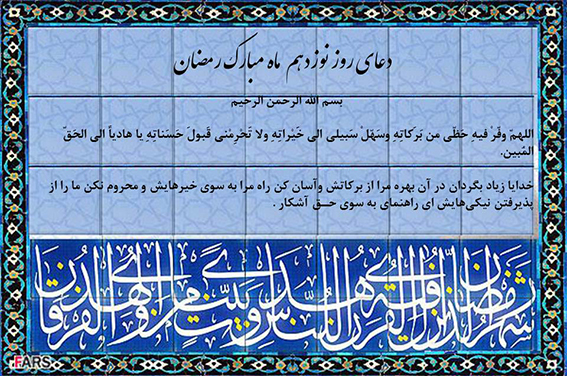 دعای روز نوزدهم ماه مبارک رمضان
بسم الله الرحمن الرحیم
اللهمّ وفّر فیهِ حَظّی من بَرَکاتِهِ وسَهّلْ سَبیلی الی خَیراتِهِ ولا تَحْرِمْنی قَبولَ حَسَناتِهِ یا هادیاً الی الحَقّ
المُبین.
خدایا زیاد بگردان در آن بهره مرا از برکاتش وآسان کن راه مرا به سوی خیرهایش و محروم نکن ما را از
پذیرفتن نیکی‌هایش ای راهنمای به سوی حـــق آشکار .
شهر رمضان الذی انزل فیه القرآن هدی للناس و بینات من الهدی و الفرقان
FARS